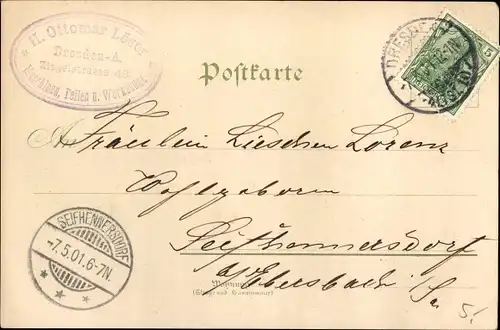 H. Ottomar Löser
Dresden-A.
Ziegelstrasse 48
Feilen u. Werkzeuge
Postkarte
DRESDEN
ALTST.
5
An Fräulein Lieschen Lorenz
Wohlgeboren
Seifhennersdorf
b/ Ebersbach i/Sa
Wohnung
(Straße und Hausnummer)
SEIFHENNERSDORF
-7.5.01.6-7N.
5.-